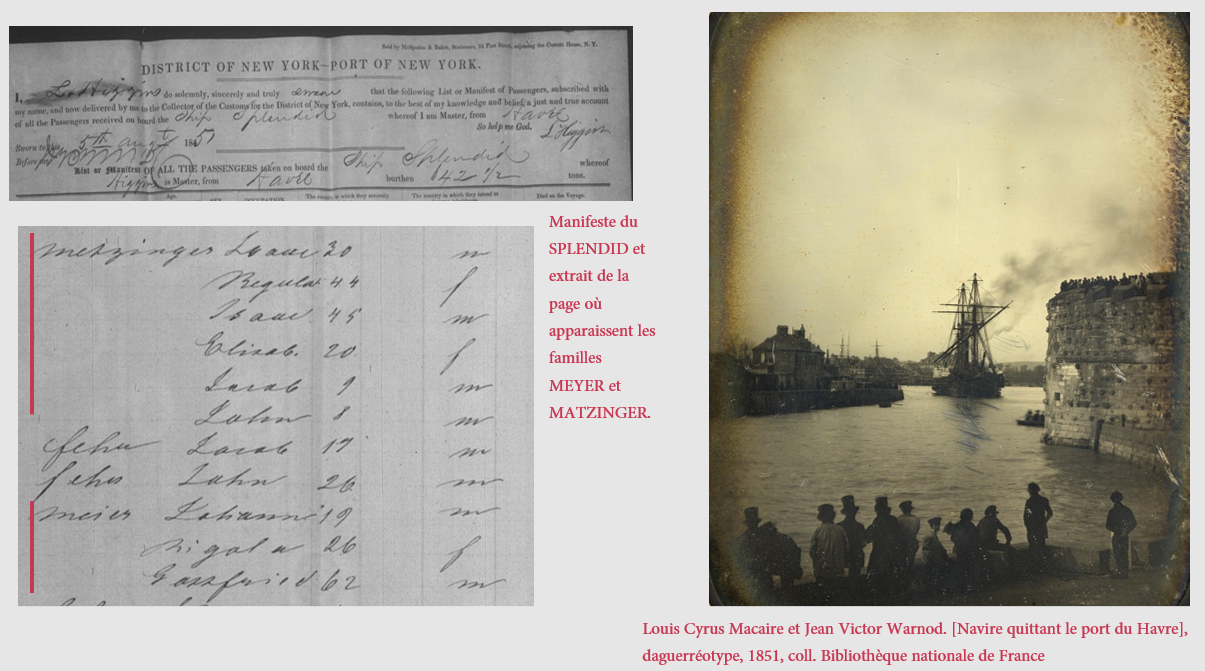 Sold by McSpedon & Baker, Stationers, 25 Pine Street, adjoining the Custom House, N. Y.
DISTRICT OF NEW YORK—PORT OF NEW YORK.
I, L. Higgins do solemnly, sincerely and truly swear that the following List or Manifest of Passengers, subscribed with
my name, and now delivered by me to the Collector of the Customs for the District of New York, contains, to the best of my knowledge and belief, a just and true account
of all the Passengers received on board the Ship Splendid whereof I am Master, from Havre
So help me God.
L Higgins
Sworn to this 5th augt 1851
Before me
List or Manifest OF ALL THE PASSENGERS taken on board the Ship Splendid whereof
Higgins is Master, from Havre burthen 642 1/2 tons.
Age. SEX. OCCUPATION. The country to which they severally The country to which they intend to Died on the Voyage.
metzinger Isaac 30 m
Regula 44 f
Isaac 45 m
Elisab. 20 f
Jacob 9 m
John 8 m
fehr Jacob 17 m
fehr John 26 m
meier Johann 19 m
Rigola 26 f
Gottfried 62 m
Manifeste du
SPLENDID et
extrait de la
page où
apparaissent les
familles
MEYER et
MATZINGER.
Louis Cyrus Macaire et Jean Victor Warnod. [Navire quittant le port du Havre],
daguerréotype, 1851, coll. Bibliothèque nationale de France